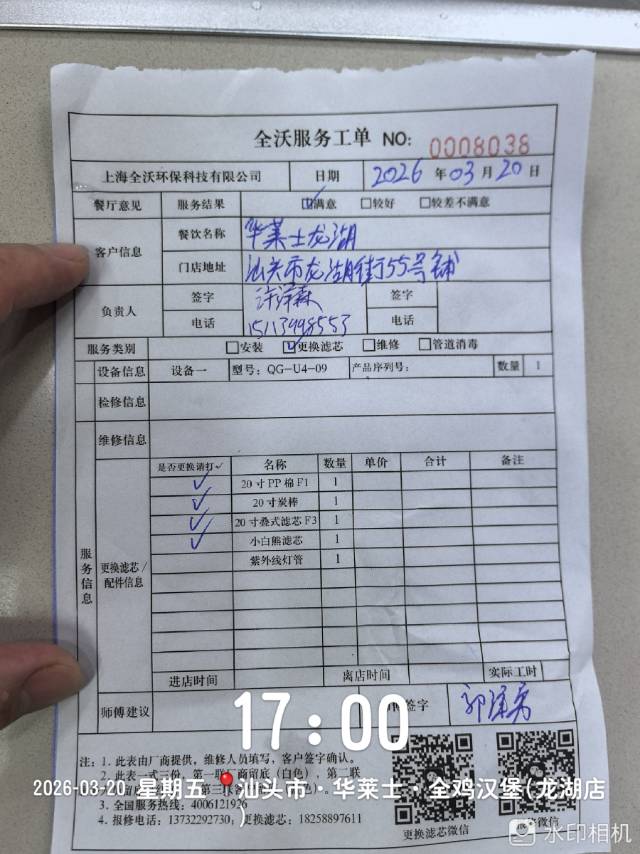 全沃服务工单 NO: 0008038
上海全沃环保科技有限公司 日期 2026 年 03 月 20 日
餐厅意见 服务结果 ☑满意 □较好 □较差不满意
客户信息 餐饮名称 华莱士龙湖
门店地址 汕头市龙湖街55号铺
负责人 签字 签字
电话 15113998553 电话
服务类别 □安装 ☑更换滤芯 □维修 □管道消毒
设备信息 设备一 型号: QG-U4-09 产品序列号: 数量 1
检修信息
维修信息
服务信息 更换滤芯/配件信息
是否更换请打✓ 名称 数量 单价 合计 备注
✓ 20寸PP棉F1 1
✓ 20寸炭棒 1
✓ 20寸叠式滤芯F3 1
✓ 小白熊滤芯 1
紫外线灯管 1
进店时间 离店时间 实际工时
师傅建议 签字
17:00
注: 1. 此表由厂商提供, 维修人员填写, 客户签字确认。
2. 此表一式三份, 第一联厂商留底 (白色), 第二联
2026-03-20 星期五 汕头市·华莱士·全鸡汉堡(龙湖店)
3. 全国服务热线: 4006121926
4. 报修电话: 13732292730; 更换滤芯: 18258897611
更换滤芯微信
微信
水印相机